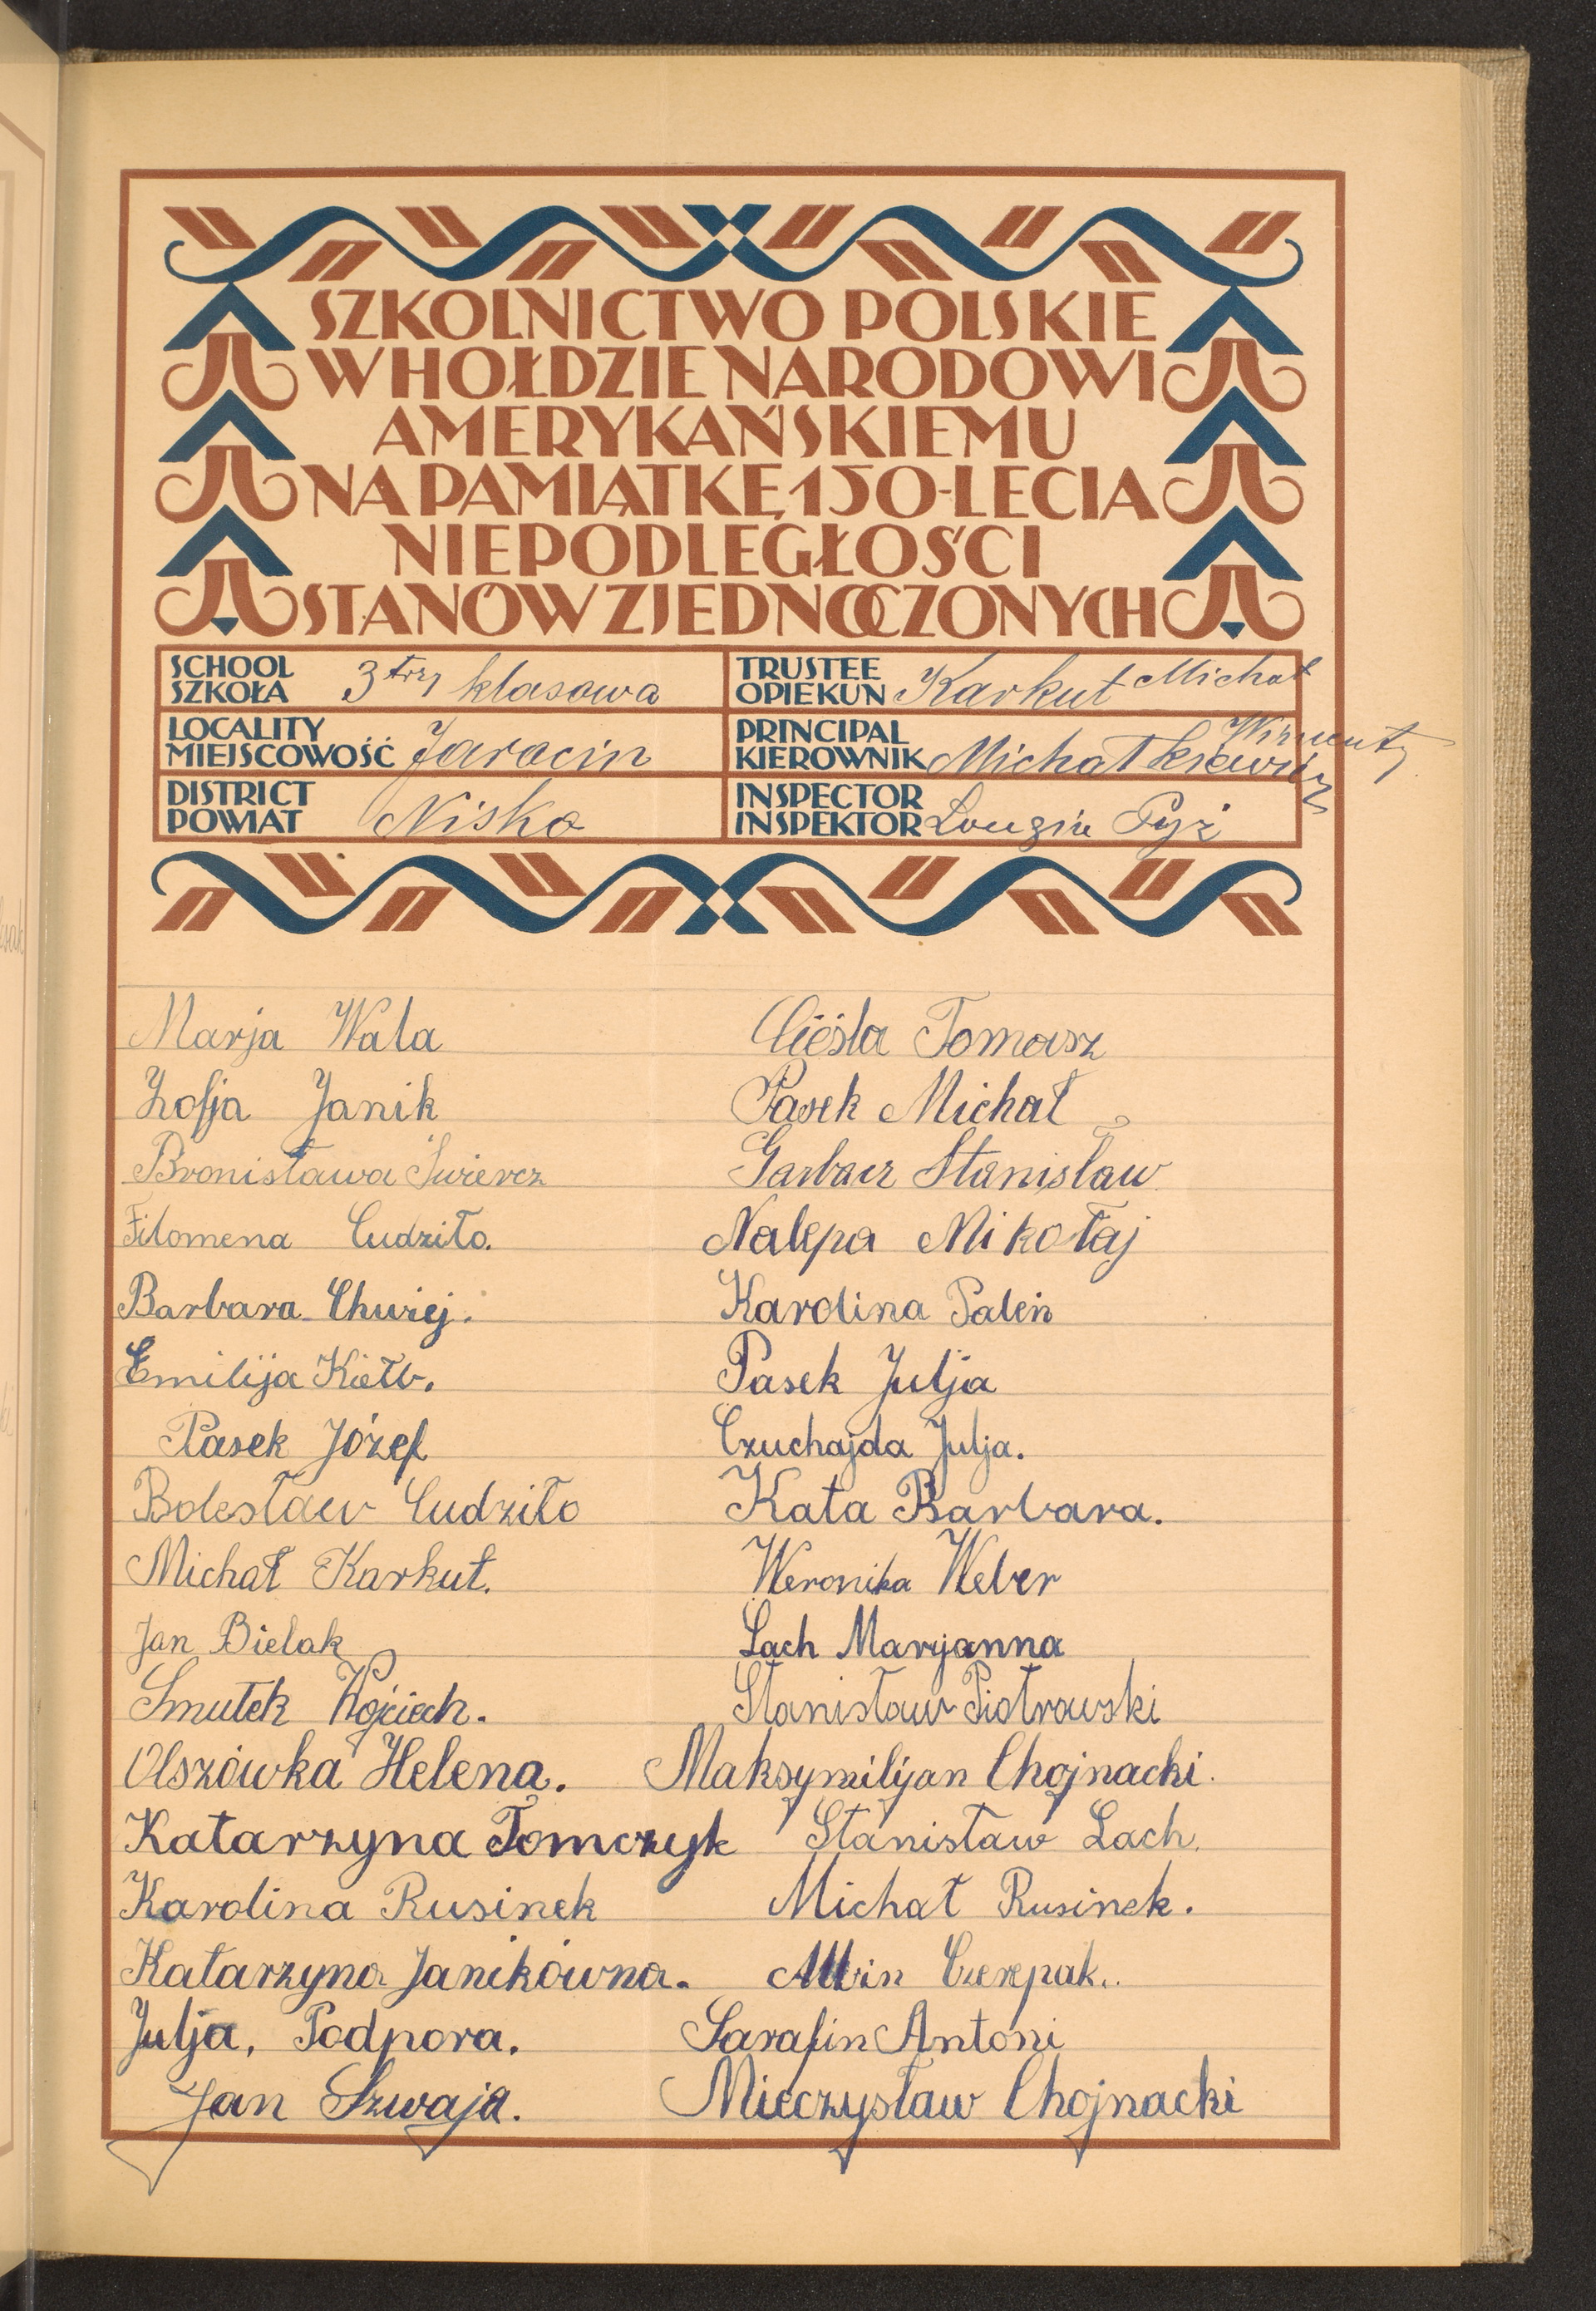 SZKOLNICTWO POLSKIE
W HOŁDZIE NARODOWI
AMERYKAŃSKIEMU
NA PAMIĄTKĘ 150-LECIA
NIEPODLEGŁOŚCI
STANÓW ZJEDNOCZONYCH
SCHOOL
SZKOŁA 3 trzy klasowa
TRUSTEE
OPIEKUN Karkut Michał
LOCALITY
MIEJSCOWOŚĆ Jarocin
PRINCIPAL
KIEROWNIK Michałkiewicz Wincenty
DISTRICT
POWIAT Nisko
INSPECTOR
INSPEKTOR Pyż
Marja Wala
Cieśla Tomasz
Zofja Janik
Pasek Michał
Bronisława Świercz
Garbacz Stanisław
Filomena Cudziło.
Nalepa Mikołaj
Barbara Chwiej.
Karolina Paleń
Emilija Kiełb.
Pasek Julja
Pasek Józef
Czuchajda Julja.
Bolesław Cudziło
Kata Barbara.
Michał Karkut.
Weronika Weber
Jan Bielak
Lach Maryanna
Smutek Wojciech.
Stanisław Piotrowski
Olszówka Helena.
Maksymilijan Chojnacki.
Katarzyna Tomczyk
Stanisław Lach.
Karolina Rusinek
Michał Rusinek.
Katarzyna Janikówna.
Albin Czerepak..
Julja, Podpora.
Sarafin Antoni
Jan Szwaja.
Mieczysław Chojnacki